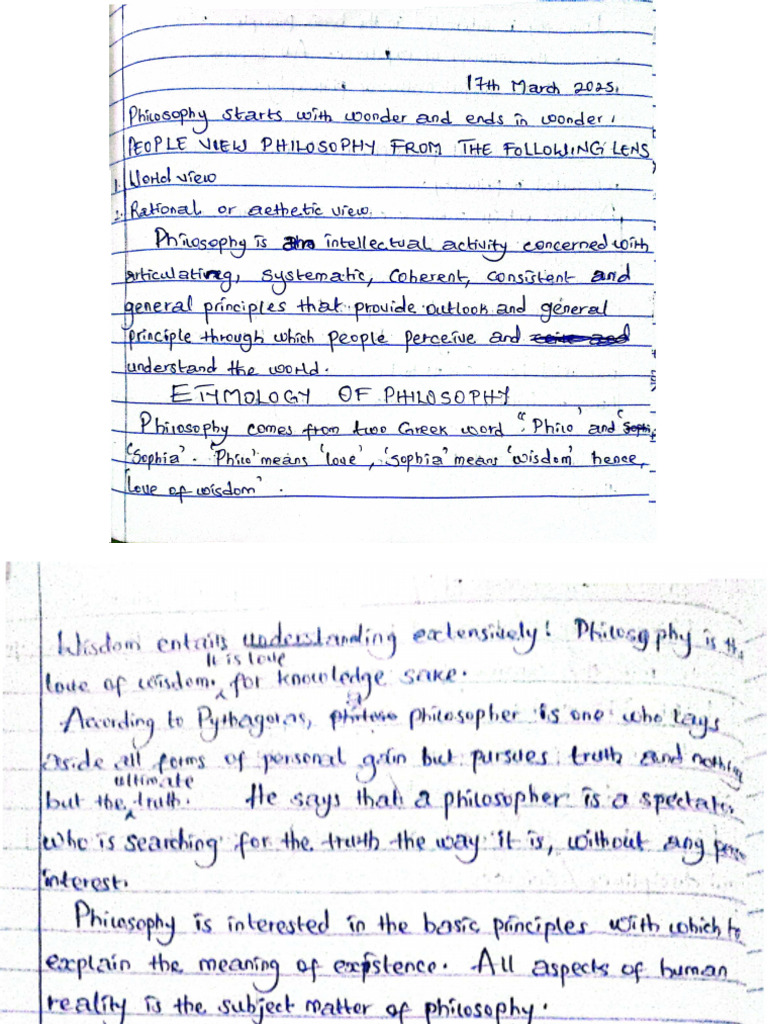 17th March 2025.
Philosophy starts with wonder and ends in wonder.
PEOPLE VIEW PHILOSOPHY FROM THE FOLLOWING LENS
1. World view
2. Rational or aethetic view.
Philosophy is an intellectual activity concerned with
articulating, systematic, coherent, consistent and
general principles that provide outlook and general
principle through which people perceive and
understand the world.
ETYMOLOGY OF PHILOSOPHY
Philosophy comes from two Greek word "'Philo' and
'Sophia'. 'Philo' means 'love', 'Sophia' means 'wisdom' hence,
'love of wisdom'.
Wisdom entails understanding extensively! Philosophy is the
love of wisdom. It is love for knowledge sake.
According to Pythagoras, a philosopher is one who lays
aside all forms of personal gain but pursues truth and nothing
but the ultimate truth. He says that a philosopher is a spectator
who is searching for the truth the way it is, without any
interest.
Philosophy is interested in the basic principles with which to
explain the meaning of existence. All aspects of human
reality is the subject matter of philosophy.